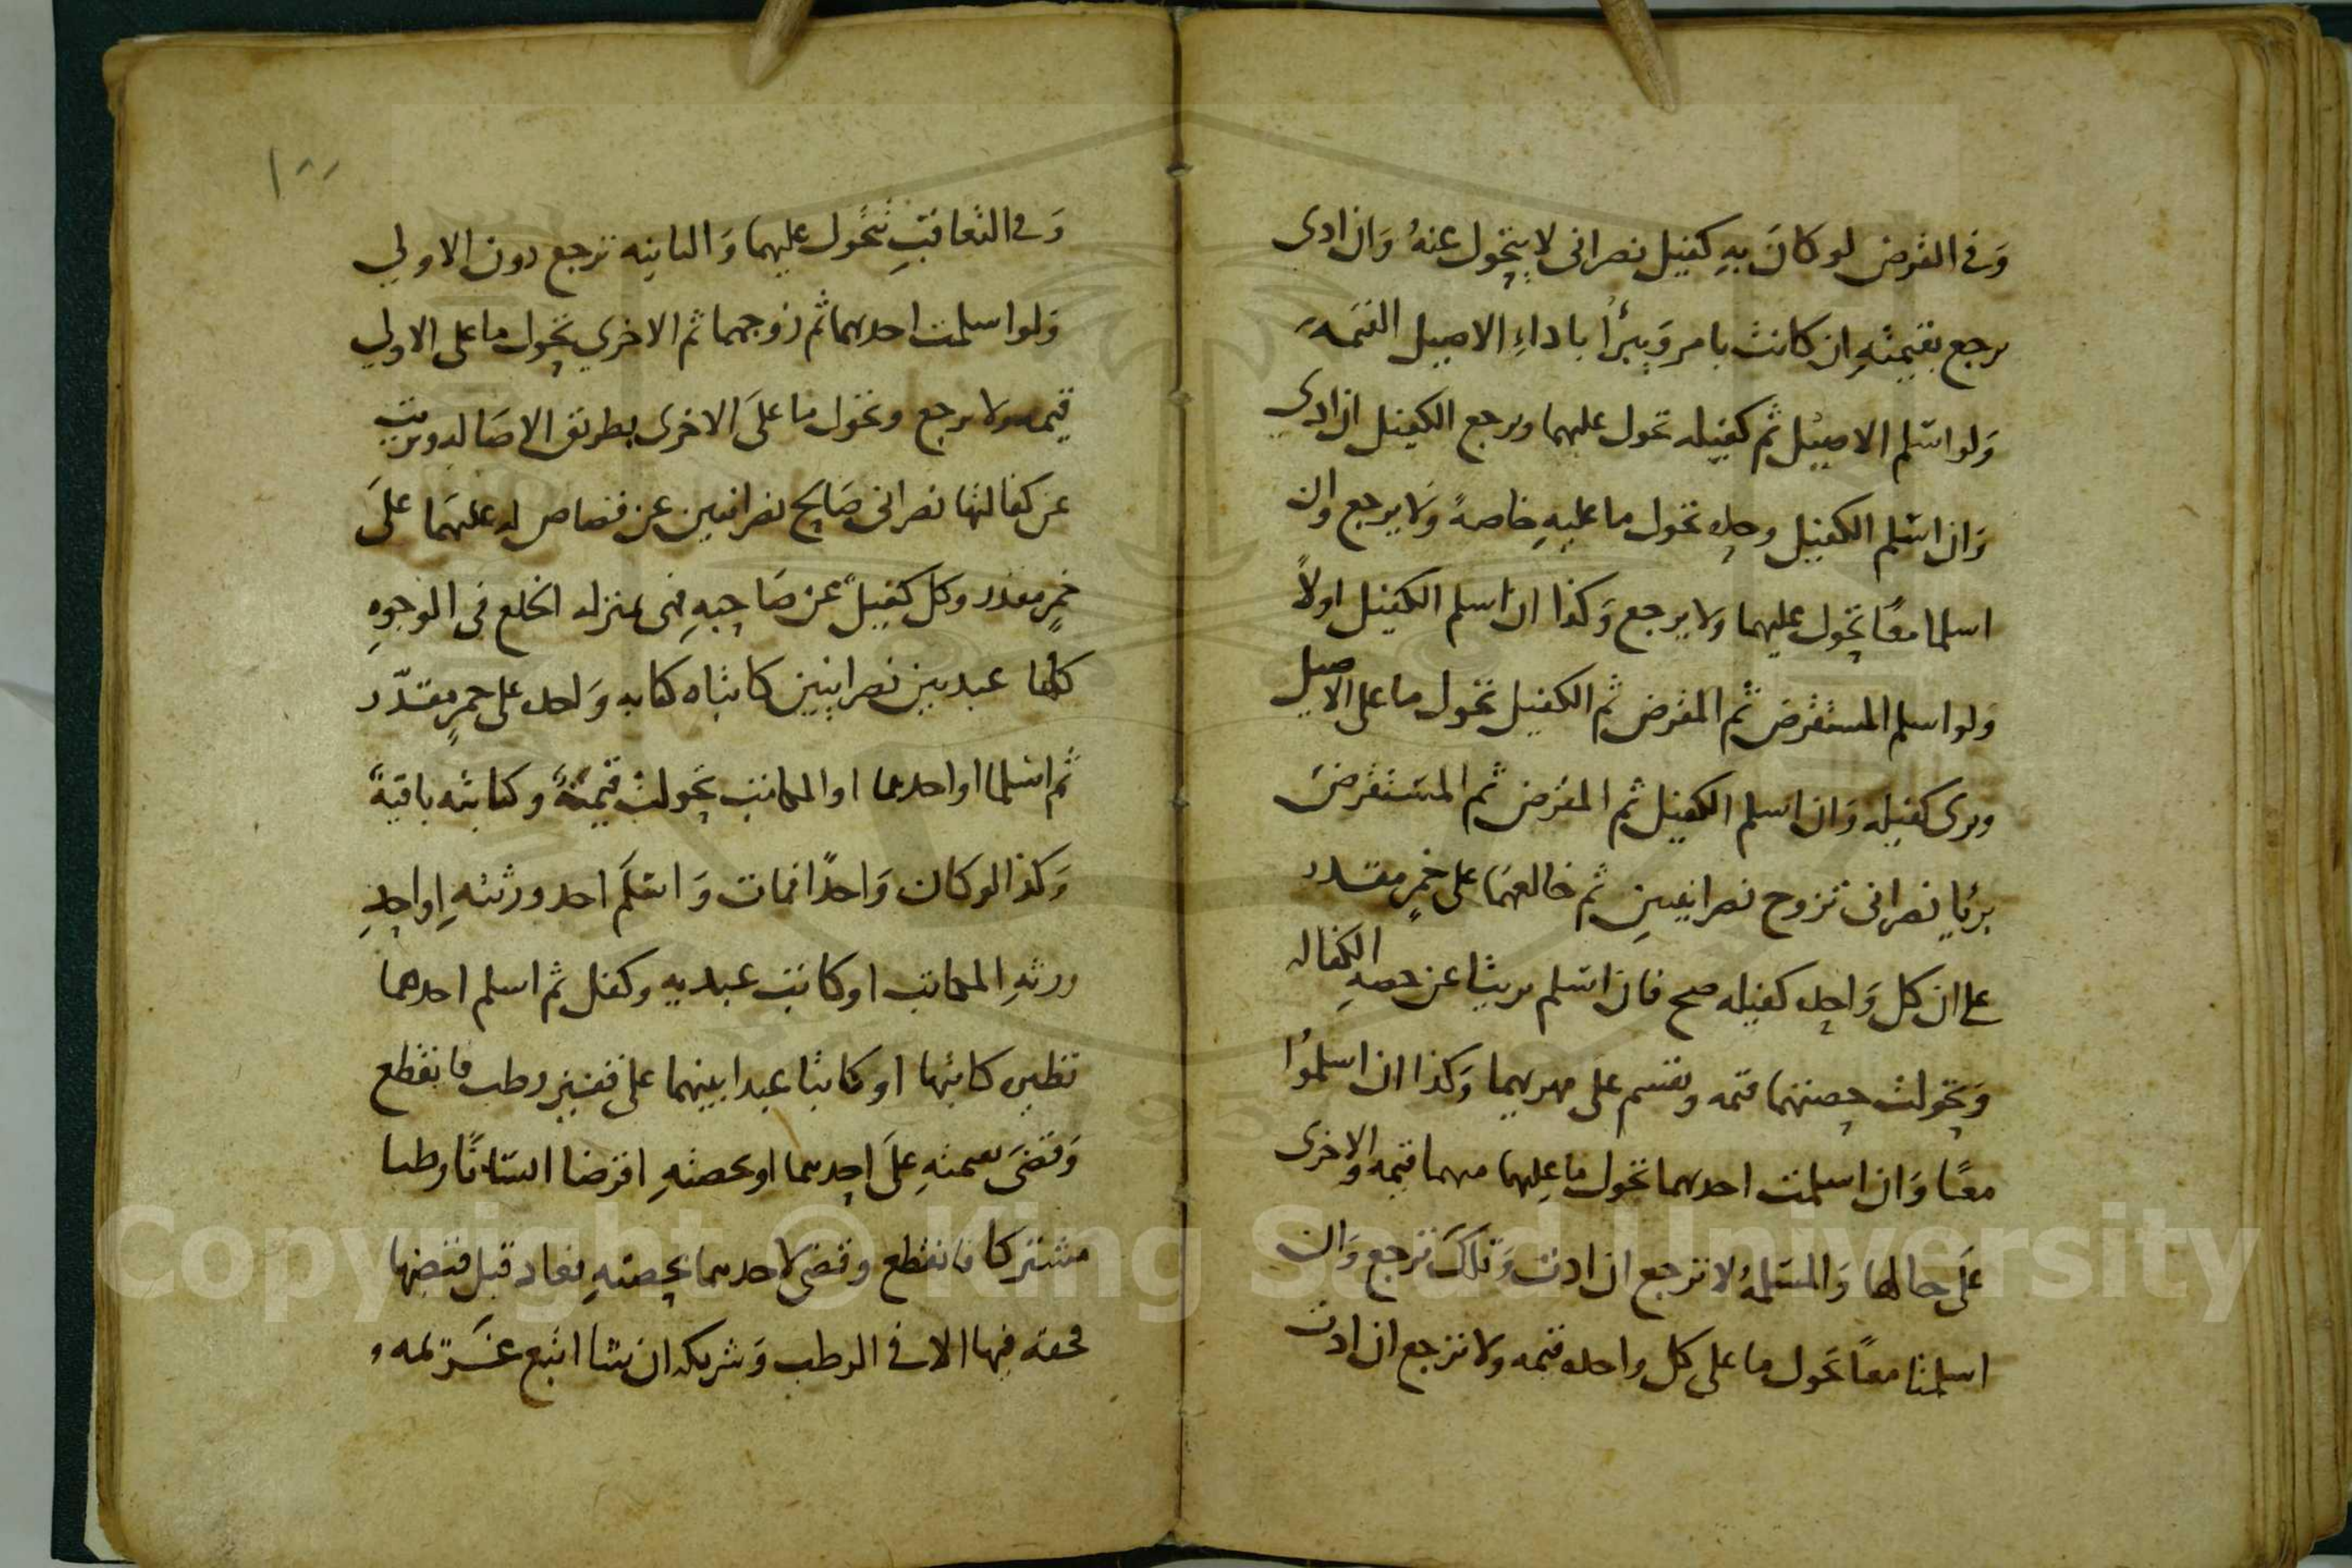 وفي القرض لو كان به كفيل نصراني لا يتحول عنه وان ادي
يرجع بقيمته ان كانت بامر ويبرأ باداء الاصيل القيمه
ولو اسلم الاصيل ثم كفيله تحول عليهما ويرجع الكفيل ان ادي
وان اسلم الكفيل وحده تحول ما عليه خاصة ولا يرجع وان
اسلما معًا تحول عليهما ولا يرجع وكذا ان اسلم الكفيل اولاً
ولو اسلم المستقرض ثم المقرض ثم الكفيل تحول ما على الاصيل
وبرى كفيله وان اسلم الكفيل ثم المقرض ثم المستقرض
برئا نصراني تزوج نصرانيتين ثم خالعهما على خمر مقدر
على ان كل واحده كفيله صح فان اسلم بريتا عن حصه الكفاله
وتحولت حصتهما قيمه وتقسم على مهريهما وكذا ان اسلموا
معًا وان اسلمت احدهما تحول ما عليها منهما قيمه والاخرى
على حالها والمسلمة لا ترجع ان ادت وتلك ترجع وان
اسلمتا معًا تحول ما على كل واحده قيمه ولا ترجع ان ادت
١٠٠
وفي التعاقب تتحول عليهما والثانيه ترجع دون الاولي
ولو اسلمت احدهما ثم زوجهما ثم الاخري تحول ما على الاولي
قيمه ولا يرجع وتحول ما على الاخرى بطريق الاصاله وبريت
عن كفالتها نصراني صالح نصرانيين عن قصاص له عليهما على
خمر مقدر وكل كفيل عن صاحبه فهى بمنزله الخلع في الوجوه
كلها عبد بين نصرانيين كاتباه كتابه واحده على خمر مقدر
ثم اسلما او احدهما او المكاتب تحولت قيمة وكتابته باقية
وكذا لو كان واحدًا فمات واسلم احد ورثته او احد
ورثه المكاتب او كاتب عبديه وكفل ثم اسلم احدهما
نظيره كاتبها او كاتبا عبدا بينهما على قفيز رطب فانقطع
وقضى بقيمته على احدهما او بحصته اقرضا انسانًا رطبا
مشتركا فانقطع وقضى لاحدهما بحصته فعاد قبل قبضها
فحقه فيها الا في الرطب وشريكه ان شا اتبع غريمه
Copyright © King Saud University